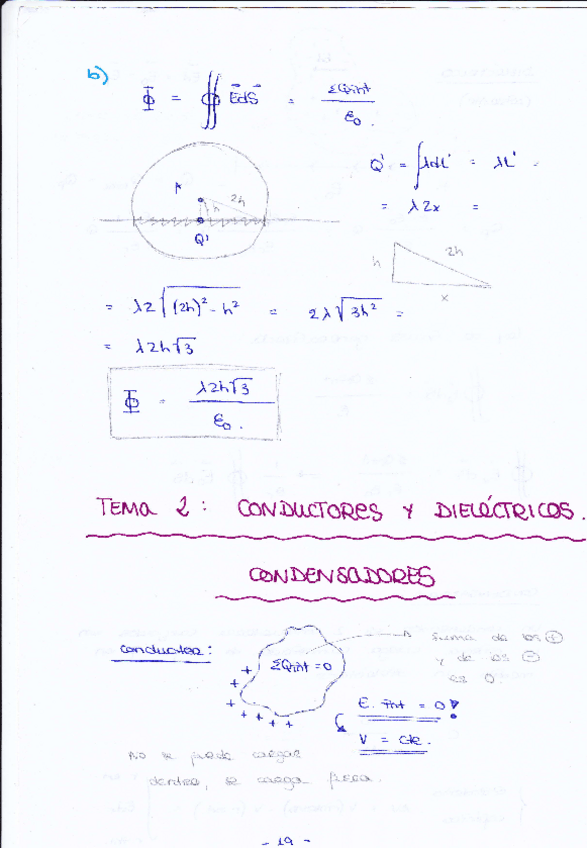 b)
Φ = ∯ E⃗dS⃗ = ΣQint / ε₀.
Q' = ∫λdl' = λL' =
= λ2x =
A
h
2h
Q'
2h
h
x
= λ2√((2h)² - h²) = 2λ√(3h²) =
= λ2h√3
Φ = λ2h√3 / ε₀.
TEMA 2: CONDUCTORES Y DIELÉCTRICOS.
CONDENSADORES
conductor:
ΣQint = 0
suma de los ⊕
y de los ⊖
es 0.
+ + + + + + +
E. int = 0!
V = cte.
No se puede cargar
dentro, se carga fuera.
- 19 -